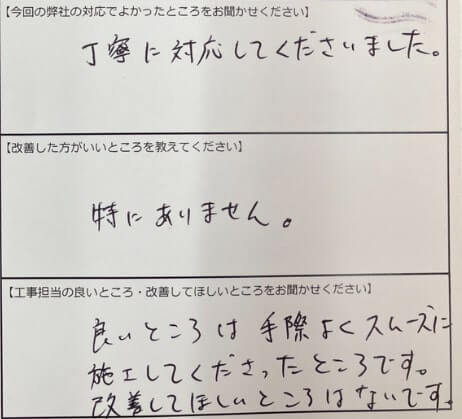 【今回の弊社の対応でよかったところをお聞かせください】
丁寧に対応してくださいました。
【改善した方がいいところを教えてください】
特にありません。
【工事担当の良いところ・改善してほしいところをお聞かせください】
良いところは手際よくスムーズに
施工してくださったところです。
改善してほしいところはないです。